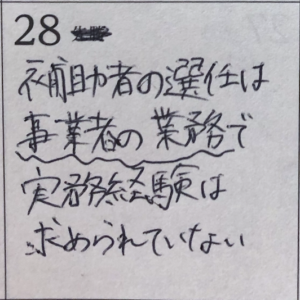 28
補助者の選任は
事業者の業務で
実務経験は
求められていない